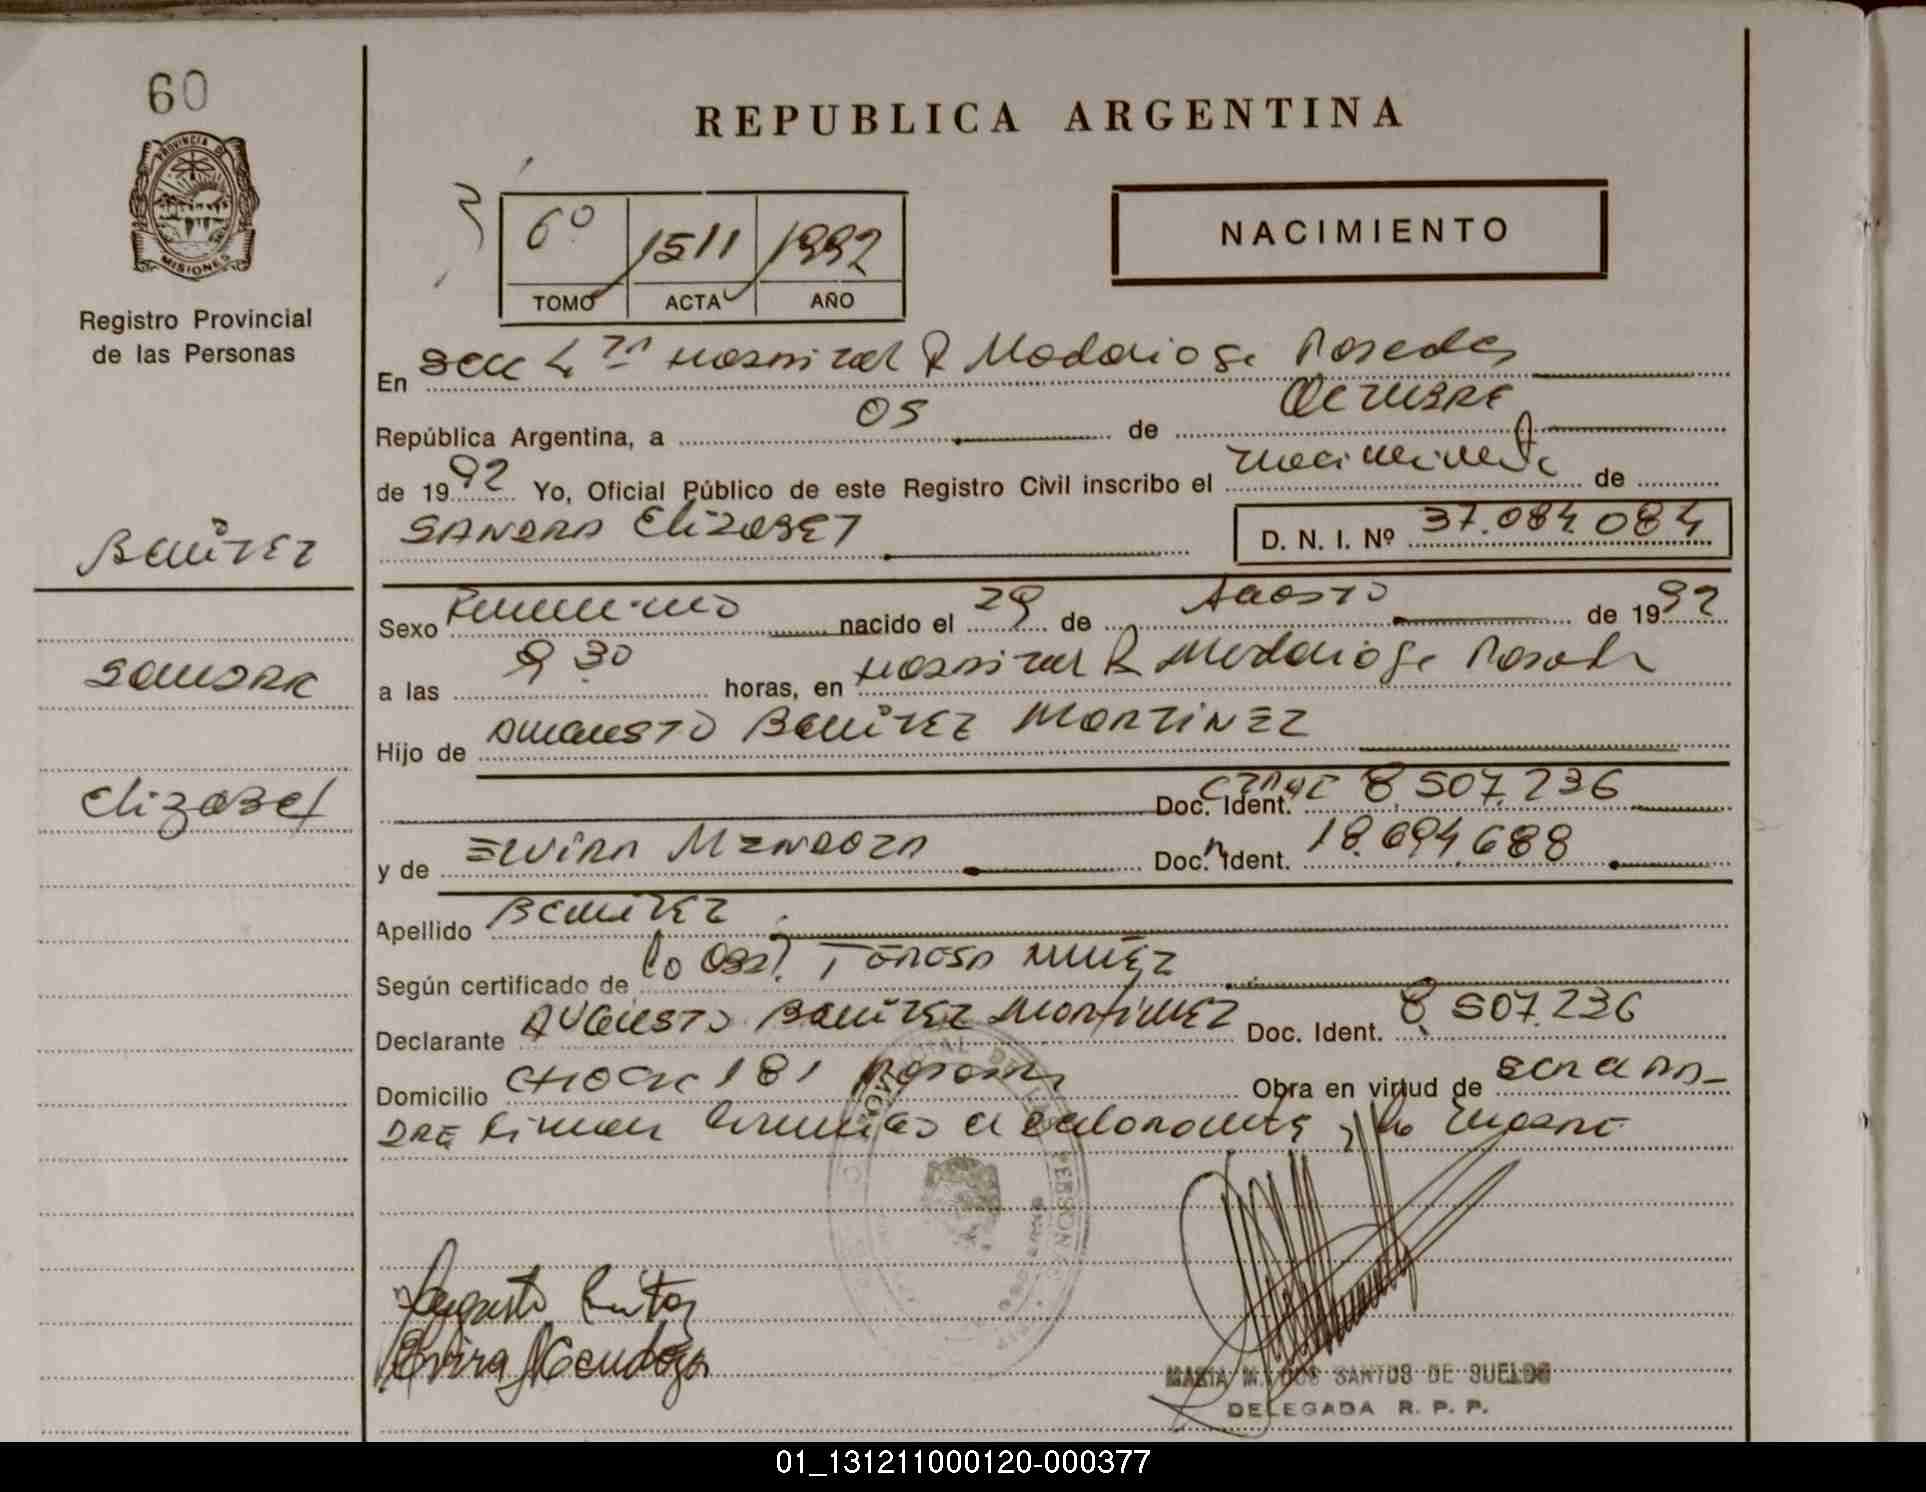 60
REPUBLICA ARGENTINA
PROVINCIA DE
MISIONES
Registro Provincial
de las Personas
6º 1511 1992
TOMO ACTA AÑO
NACIMIENTO
En Secc 4ta Hospital R Madariaga Posadas
República Argentina, a 05 de Octubre
de 1992 Yo, Oficial Público de este Registro Civil inscribo el nacimiento de
SANDRA ElizaBET D. N. I. Nº 37.084 084
BENITEZ
SANDRA
ElizaBet
Sexo Femenino nacido el 29 de Agosto de 1992
a las 9 30 horas, en Hospital R Madariaga Posadas
Hijo de AUGUSTO BENITEZ MARTINEZ
Doc. Ident. 8 507.236
y de ELVIRA MENDOZA Doc. Ident. 18.694.688
Apellido BENITEZ
Según certificado de la Obst. MUÑEZ
Declarante AUGUSTO BENITEZ MARTINEZ Doc. Ident. 8 507.236
Domicilio 181 Posadas Obra en virtud de ser la
DRE Firman el declarante y la
Augusto
Elvira Mendoza
MARIA M. DOS SANTOS DE SUELDO
DELEGADA R. P. P.
01_131211000120-000377